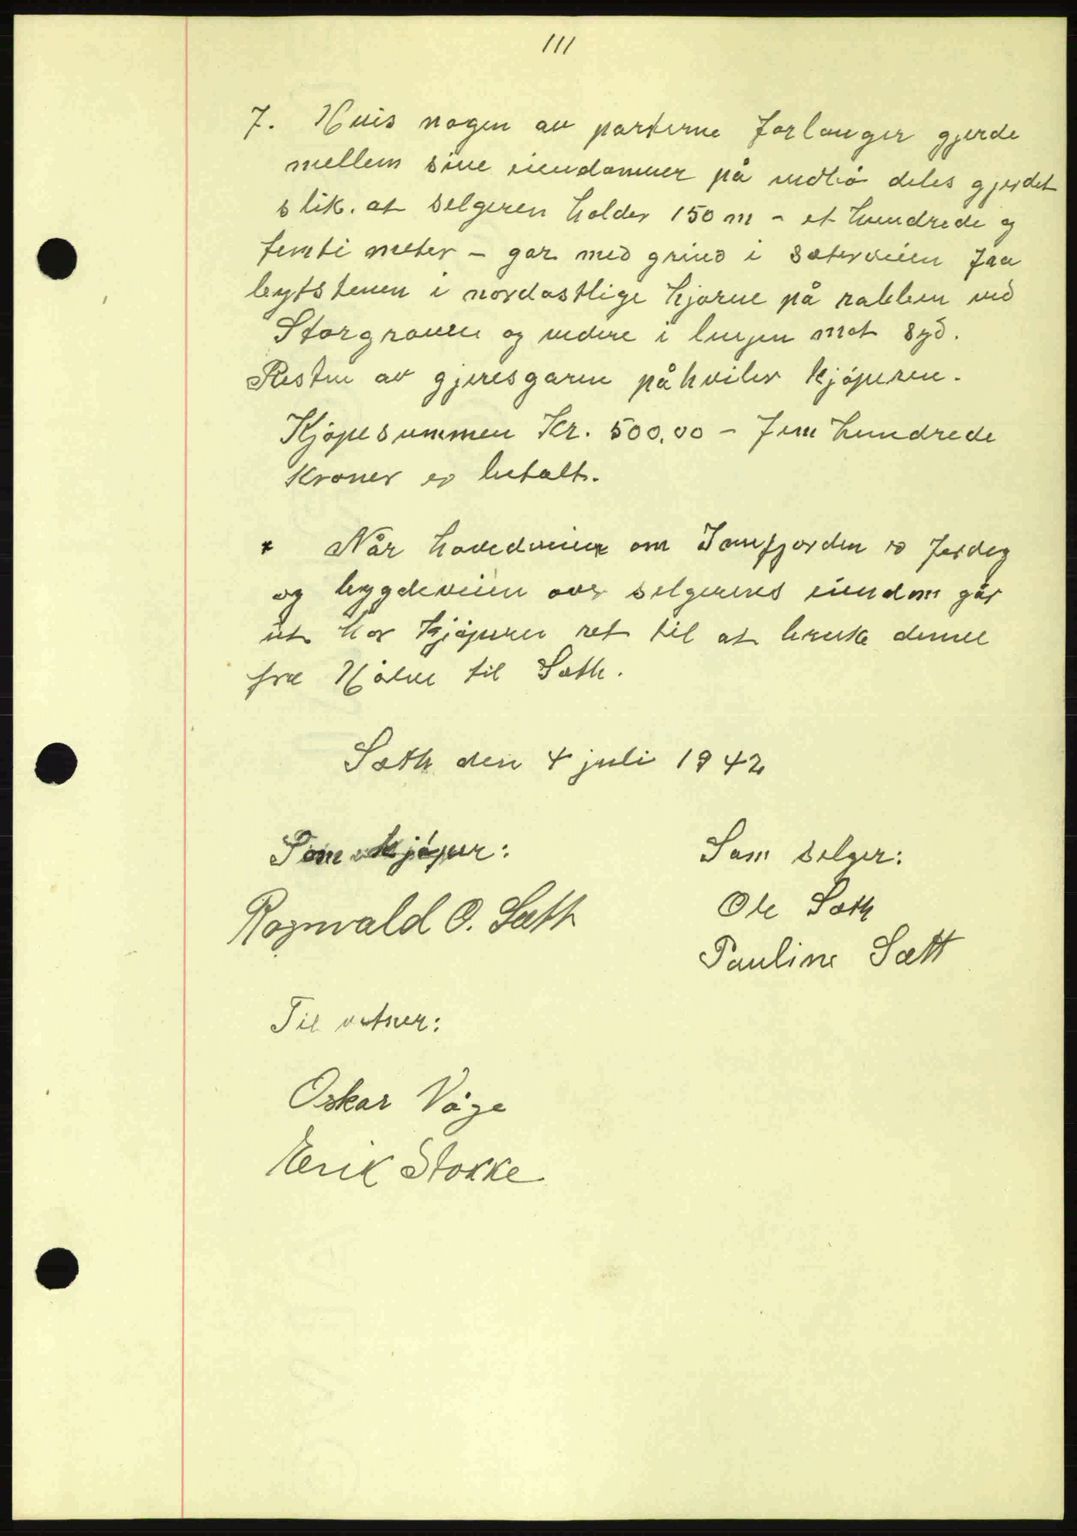 111
7. Hvis nogen av parterne forlanger gjerde
mellem sine eiendommer på indbø deles gjerdet
slik. at selgeren holder 150 m - et hundrede og
femti meter - gar med grind i sæterveien fra
bytstenen i nordøstlige hjørne på rabben ved
Storgroven og videre i linjen mot syd.
Resten av gjeresgaren påhviler kjøperen.
Kjøpesummen Kr. 500,00 - fem hundrede
kroner er betalt.
* Når hovedveien om Tomfjorden er ferdig
og bygdeveien over selgerens eiendom går
ut har kjøperen ret til at bruke denne
fra Hjålen til Sæth.
Sæth den 4 juli 1942
Som kjøper: Som selger:
Ragnvald O. Sætt Ole Sæth
Pauline Sætt
Til vitner:
Oskar Våge
Erik Stokke